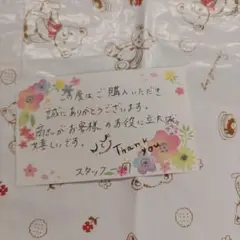 この度はご購入いただき
誠にありがとうございます。
商品がお客様のお役に立てれば
嬉しいです。
Thank you
スタッフ一同